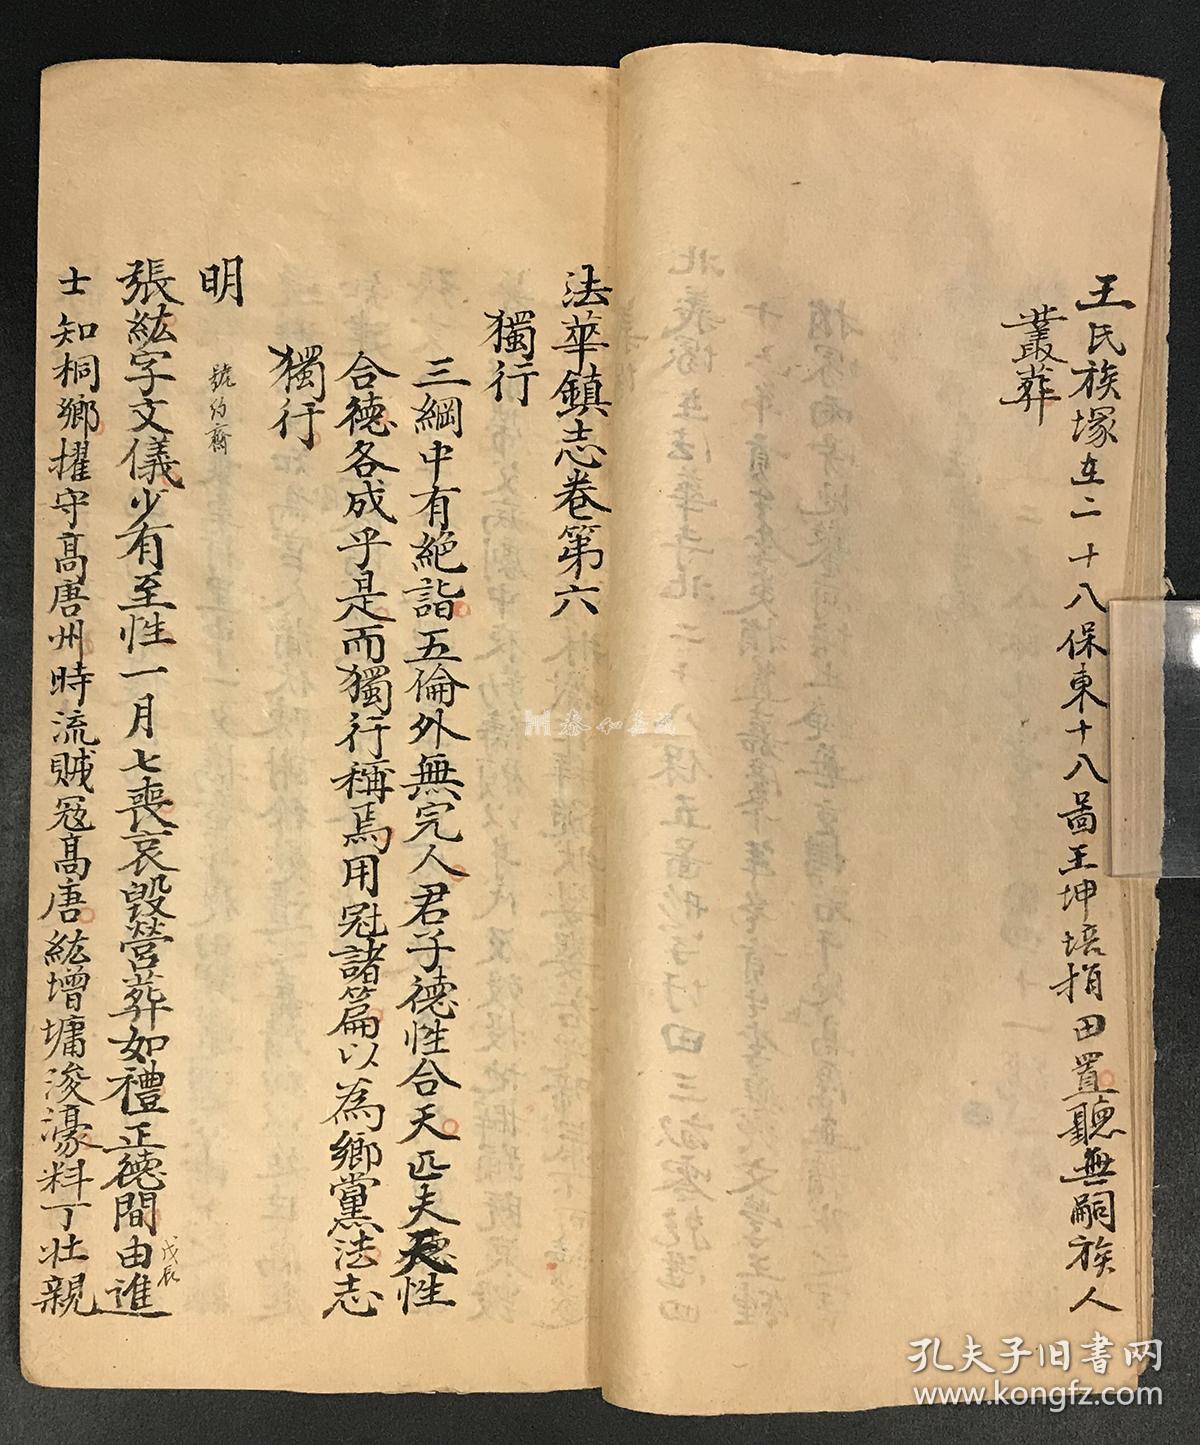 王氏族塚在二十八保東十八啚王坤培捐田置聽無嗣族人
叢葬
法華鎮志卷第六
獨行
三綱中有絶詣五倫外無完人君子德性合天匹夫德性
合德各成乎是而獨行稱焉用冠諸篇以為鄉黨法志
獨行
明
號約齋
張紘字文儀少有至性一月七喪哀毀營葬如禮正德間由進
戊辰
士知桐鄉擢守高唐州時流賊寇高唐紘增墉浚濠料丁壯親
泰和嘉成
孔夫子旧書网
www.kongfz.com